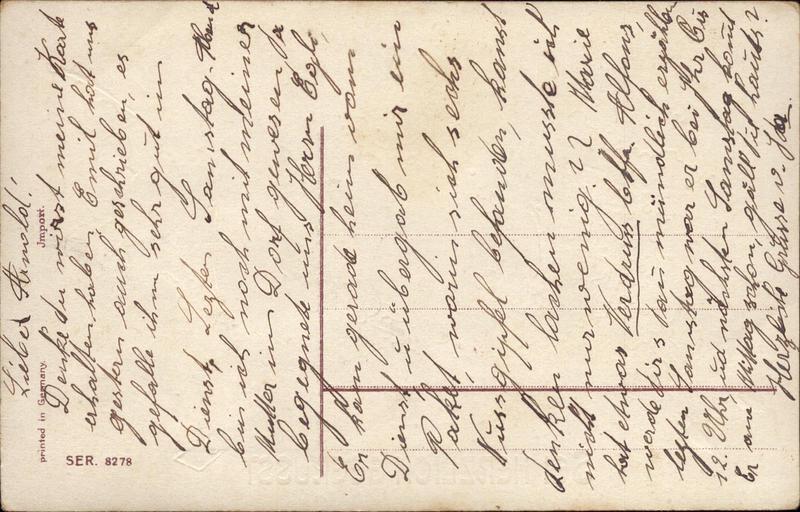 Lieber Arnold!
Denke du wirst meine Karte
erhalten haben, Emil hat uns
gestern auch geschrieben, es
gefalle ihm sehr gut im
Dienst. Lezten Samstag-Abend
bin ich noch mit meiner
Mutter im Dorf gewesen, da
begegnete uns Herrn Egli,
Er kam gerade heim vom
Dienst u. übergab mir ein
Paket, worin sich sechs
Nussgipfel befanden, kanst
denken lachen musste ich
nicht nur wenig?? Marie
hat etwas Verdruss Alfons,
werde dirs dan mündlich erzählen
lezten Samstag war er bei Ihr bis
12 Uhr, und nächsten Samstag komt
Er am Mittag schon, gäll Sit lauts?
Herzliche Grüsse v. Ida.
printed in Germany
Jmport.
SER. 8278